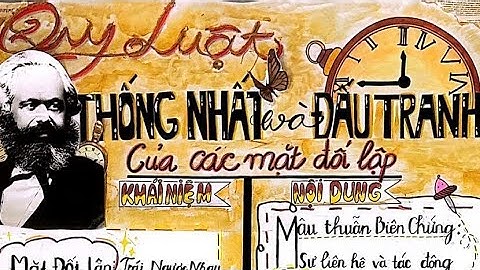 Quy Luật
THỐNG NHẤT và ĐẤU TRANH
Của các mặt đối lập
KHÁI NIỆM
NỘI DUNG
Mâu thuẫn Biên Chứng:
Sự liên hệ và tác động
Mặt Đối lập: Trái Ngược Nhau